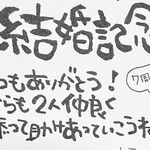 結婚記念
つもありがとう！
7周
らも2人仲良く
って助けあっていこうね